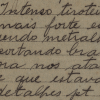 Intenso tirote
mais forte e
uendo metral
portando bra
ra nos ata
e que estav
detalhes pt